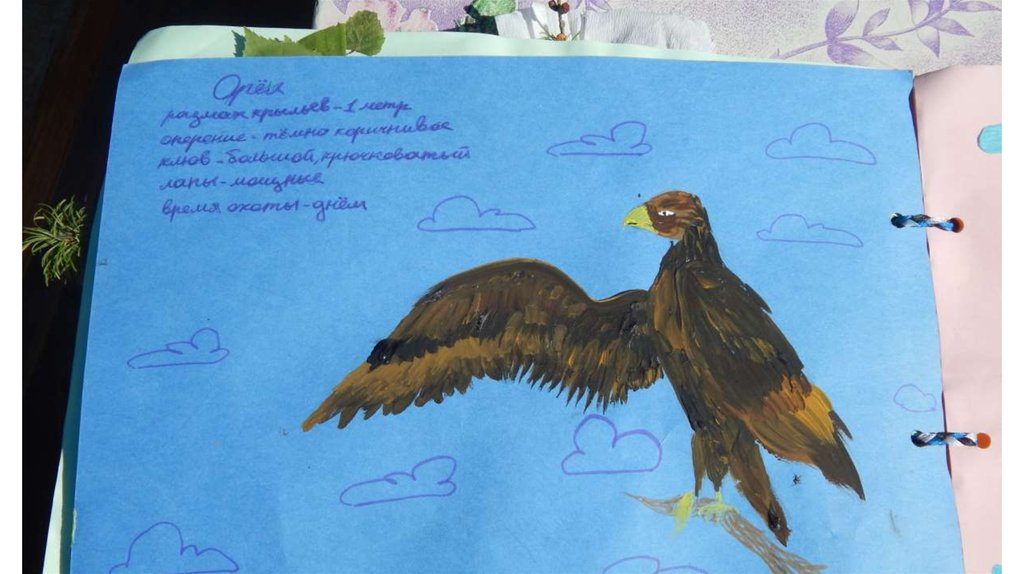 Орёл
размах крыльев - 1 метр
оперение - тёмно коричнивое
клюв - большой, крючковатый
лапы - мощные
время охоты - днём